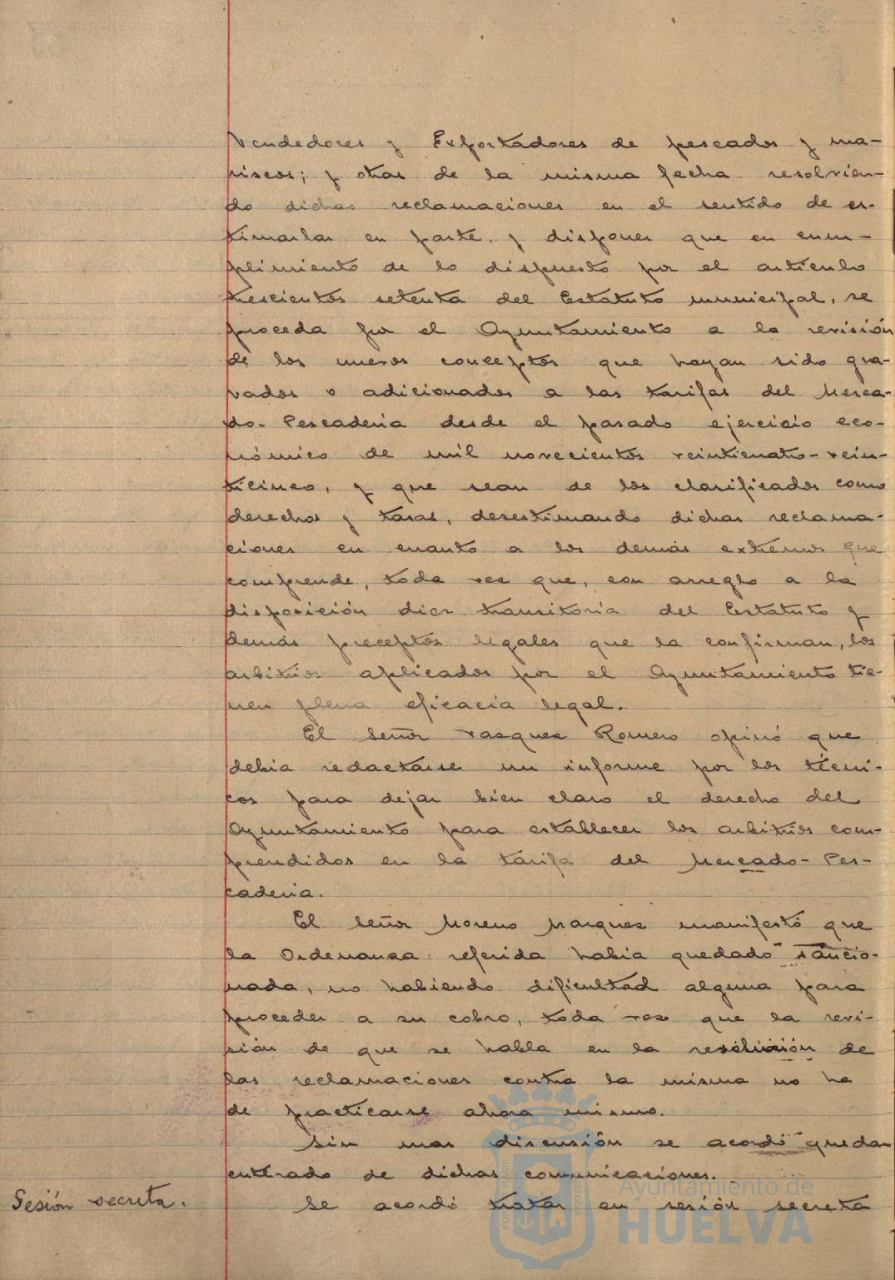 Vendedores y Exportadores de pescados y ma-
riscos; y otras de la misma fecha resolvien-
do dichas reclamaciones en el sentido de es-
timarlas en parte, y disponer que en cum-
plimiento de lo dispuesto por el artículo
trescientos setenta del Estatuto municipal, se
proceda por el Ayuntamiento a la revisión
de los nuevos conceptos que hayan sido gra-
vados o adicionados a las tarifas del Merca-
do-Pescaderia desde el pasado ejercicio eco-
nómico de mil novecientos veinticuatro-vein-
ticinco, y que sean de los clasificados como
derechos y tasas, desestimando dichas reclama-
ciones en cuanto a los demás extremos que
comprende, toda vez que, con arreglo a la
disposición diez transitoria del Estatuto y
demás preceptos legales que la confirman, los
arbitrios aplicados por el Ayuntamiento tie-
nen plena eficacia legal.
El señor Vasquez Romero opinó que
debia redactarse un informe por los técni-
cos para dejar bien claro el derecho del
Ayuntamiento para establecer los arbitrios com-
prendidos en la tarifa del Mercado-Pes-
caderia.
El señor Moreno Marquez manifestó que
la Ordenanza referida habia quedado sancio-
nada, no habiendo dificultad alguna para
proceder a su cobro, toda vez que la revi-
sión de que se habla en la resolución de
las reclamaciones contra la misma no ha
de practicarse ahora mismo.
Sin mas discusión se acordó quedar
enterado de dichas comunicaciones.
Sesión secreta.
Se acordó tratar en sesión secreta
Ayuntamiento de
HUELVA